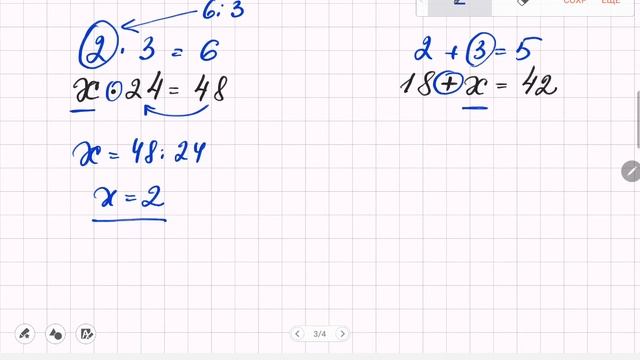 6:3
2 · 3 = 6
x · 24 = 48
x = 48 : 24
x = 2
2 + 3 = 5
18 + x = 42
3/4